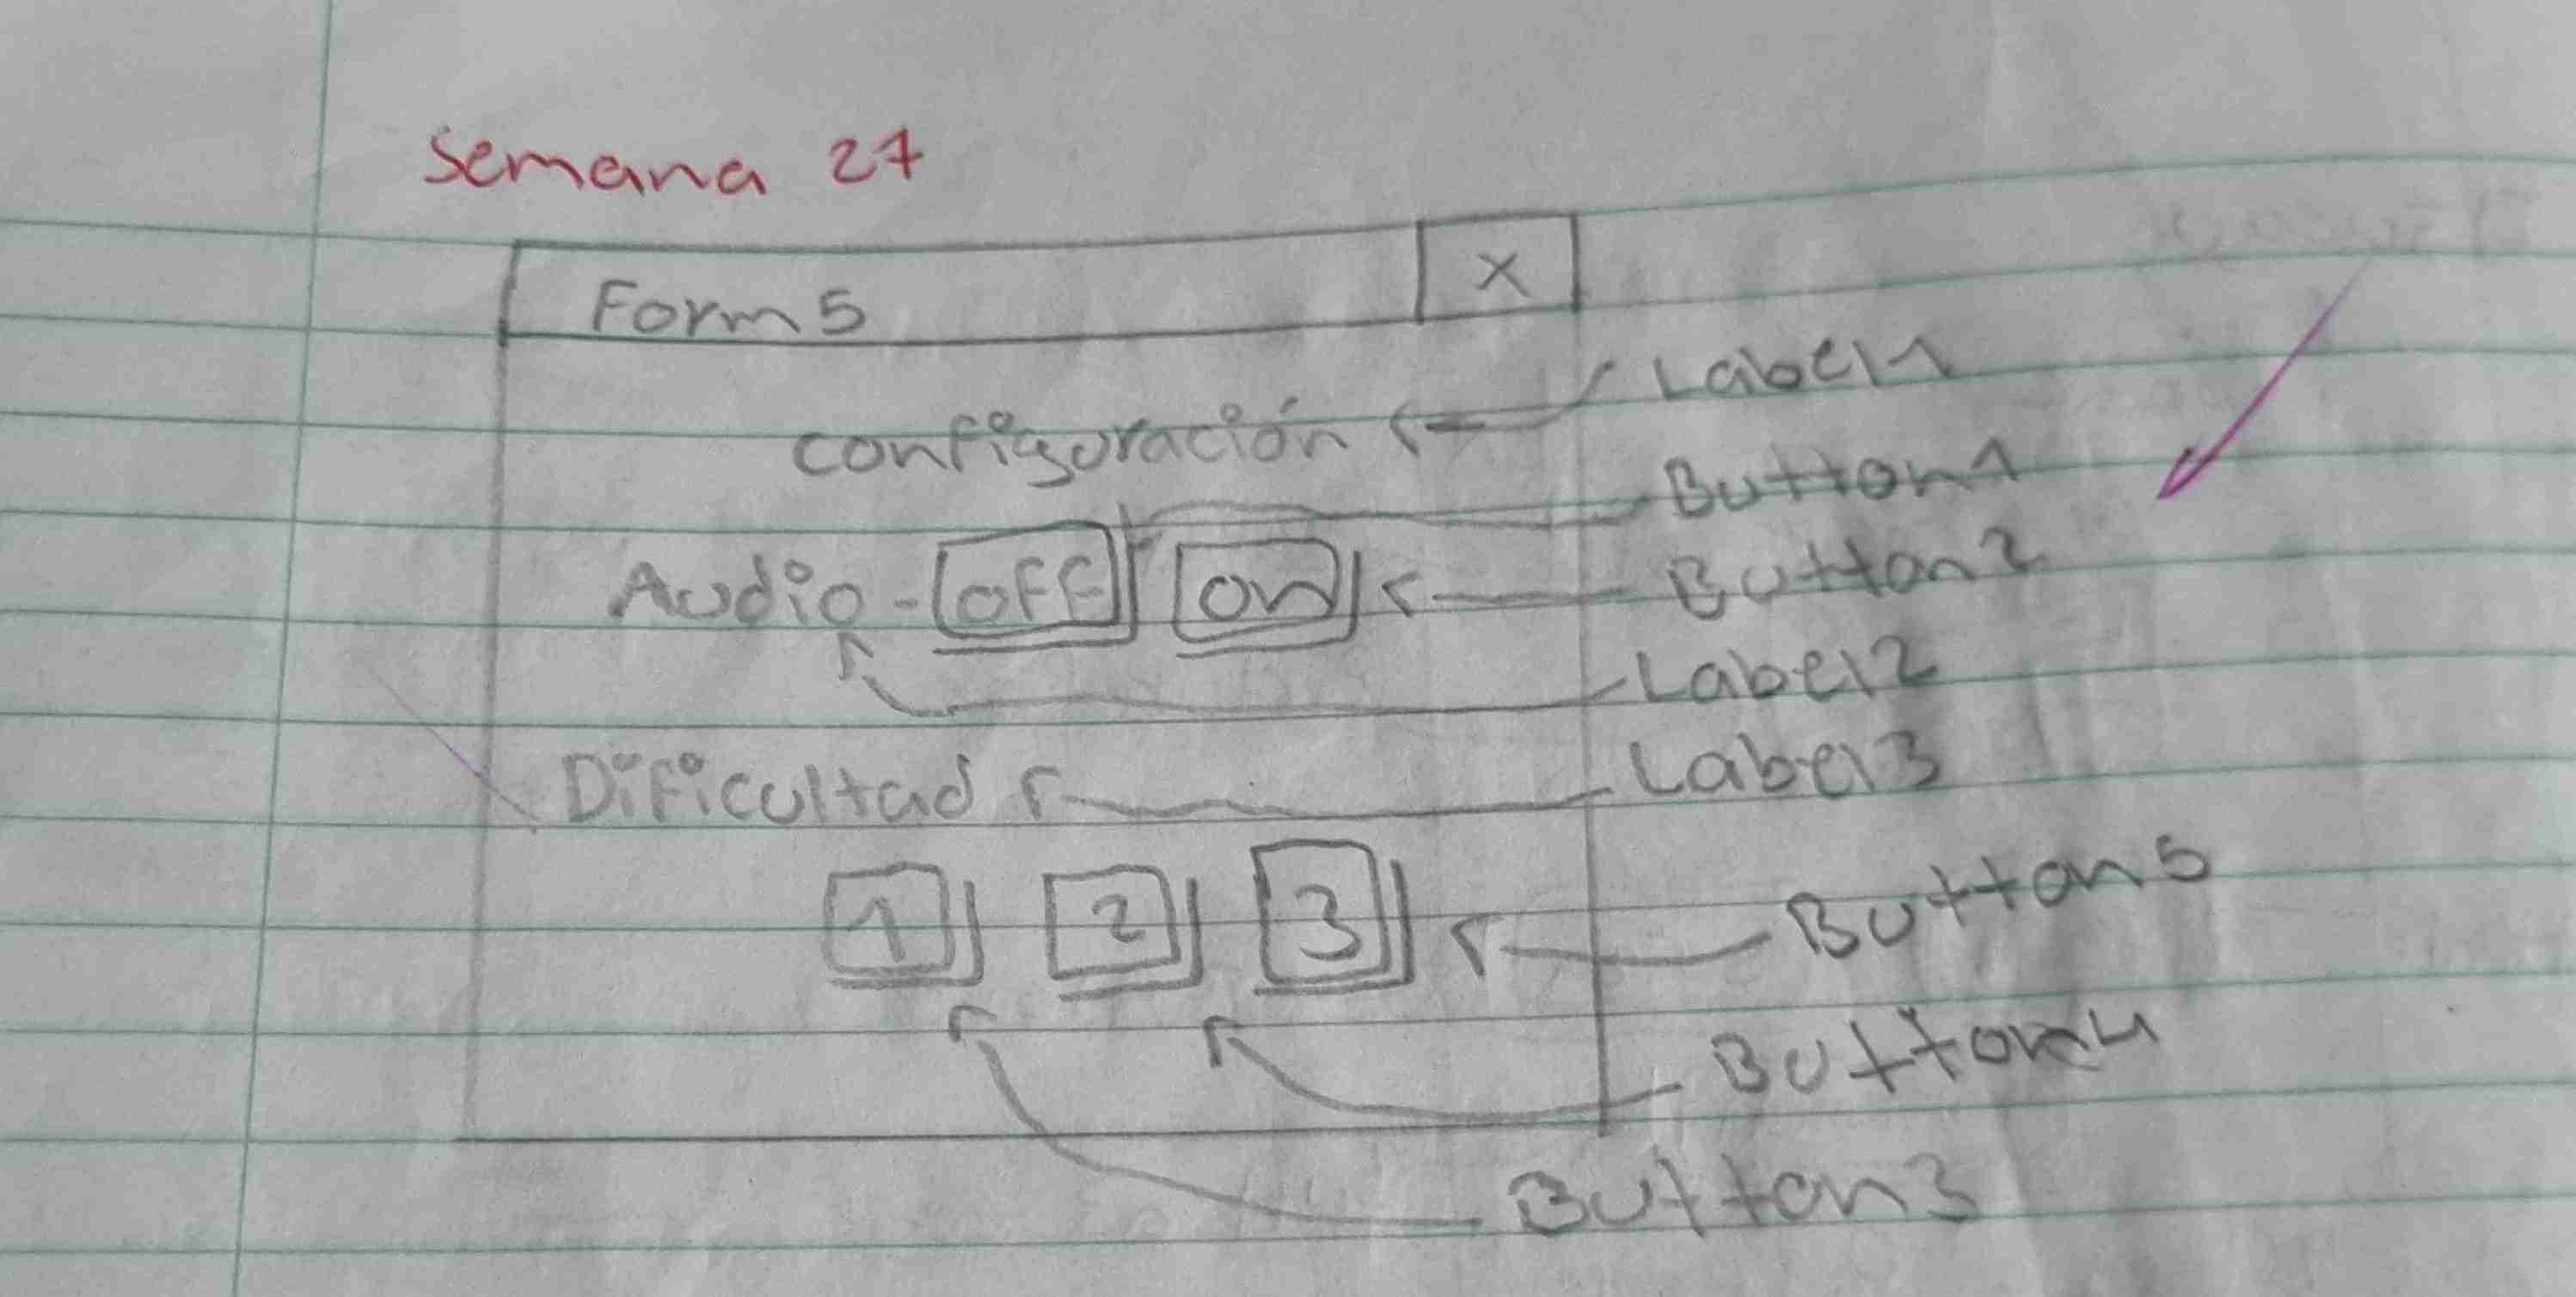 Semana 27
Form5 X
configuración Label1
Button1
Audio - off on Button2
Label2
Dificultad Label3
1 2 3 Button5
Button4
Button3